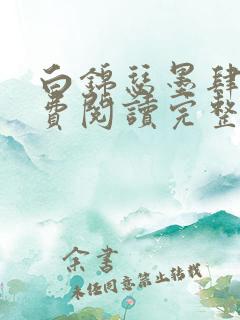 白錦瑟墨肆
費閱讀完整
余書
未經同意禁止轉載